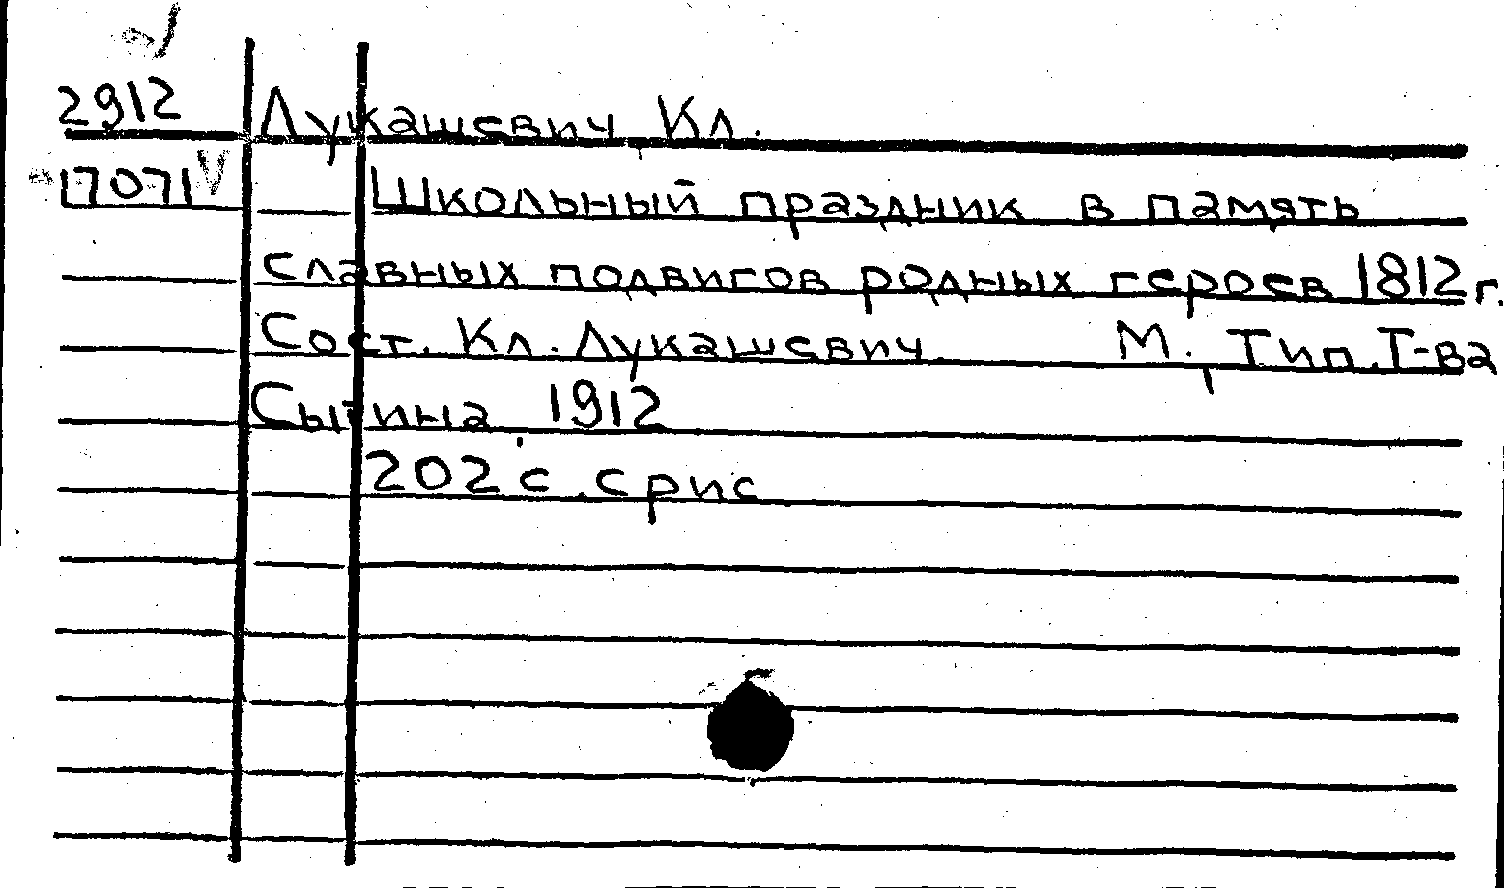 2912 Лукашевич Кл.
17071 Школьный праздник в память
славных подвигов родных героев 1812 г.
Сост. Кл. Лукашевич. М., Тип. Т-ва
Сытина, 1912
202 с. с рис